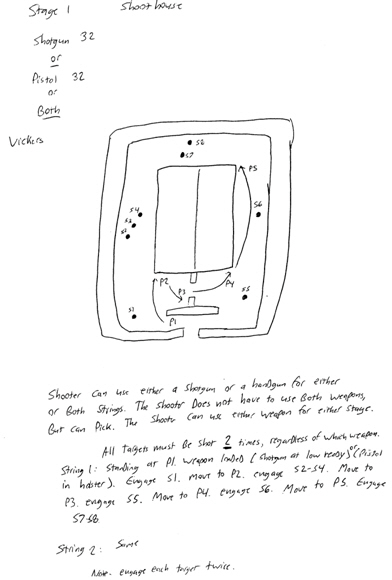 Stage 1 Shoot house
Shotgun 32
or
Pistol 32
or
Both
Vickers
S8
S7
P5
S4
S3
S2
S6
P2
P3
P4
S5
S1
P1
Shooter can use either a shotgun or a handgun for either
or Both Strings. The shooter Does not have to use Both weapons,
But can Pick. The Shooter can use either weapon for either stage.
All targets must be shot 2 times, regardless of which weapon.
String 1: Standing at P1. weapon loaded (shotgun at low ready) or (Pistol
in holster). Engage S1. move to P2. engage S2-S4. Move to
P3. engage S5. Move to P4. engage S6. Move to P5. Engage
S7-S8.
String 2: Same
Note. engage each target twice.